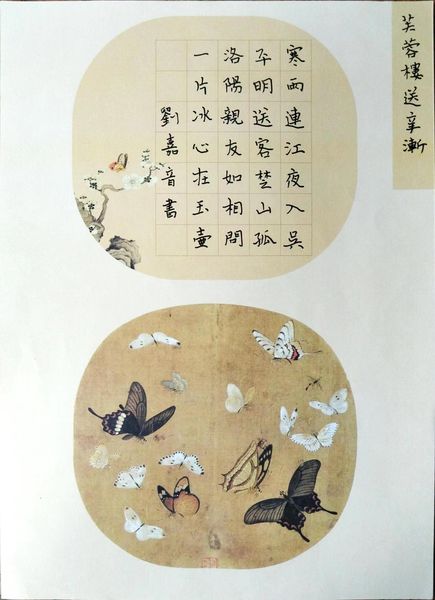 芙蓉樓送辛漸
寒雨連江夜入吳
平明送客楚山孤
洛陽親友如相問
一片冰心在玉壺
劉嘉音書